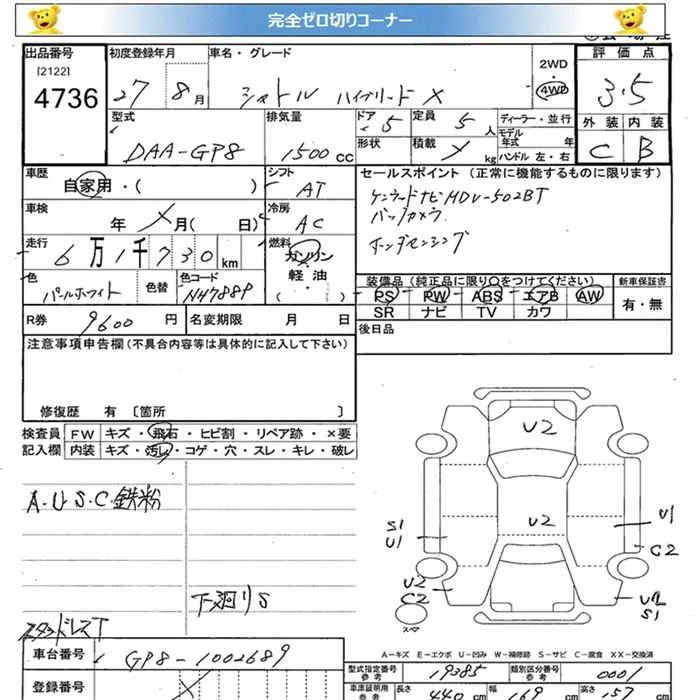 完全ゼロ切りコーナー
出品番号 初度登録年月 車名・グレード 評価点
[2122]
4736 27 8月 シャトル ハイブリッド X 2WD 4WD 3.5
型式 排気量 ドア 定員 ディーラー・並行 外装 内装
DAA-GP8 1500cc 5 5人 モデル年式 年 C B
形状 積載 kg ハンドル 左・右
車歴 シフト セールスポイント(正常に機能するものに限ります)
自家用・( ) AT ケンウッドナビHDV-502BT
車検 冷房 バックカメラ
年 月( 日) AC ホンダセンシング
走行 燃料
6万1千730km ガソリン
軽・油
( )
色 色替 色コード 装備品(純正品に限り○をつけてください) 新車保証書
パールホワイト NH788P PS PW ABS エアB AW 有・無
SR ナビ TV カワ
R券 9600円 名変期限 月 日 後日品
注意事項申告欄(不具合内容等は具体的に記入して下さい)
修復歴 有 〔箇所 〕
検査員 FW キズ・飛石・ヒビ割・リペア跡・×要
記入欄 内装 キズ・汚れ・コゲ・穴・スレ・キレ・破レ
A・U・S・C・鉄粉
下廻りS
スタッドレスT
U2
U2
S1
U1
U1
C2
U2
C2
U2
S1
スペア
A-キズ E-エクボ U-凹み W-補修跡 S-サビ C-腐食 XX-交換済
車台番号 GP8-1002689
型式指定番号 参考 19385 類別区分番号 参考 0001
登録番号
車庫証明用 参考 長さ 440cm 幅 169cm 高さ 157cm